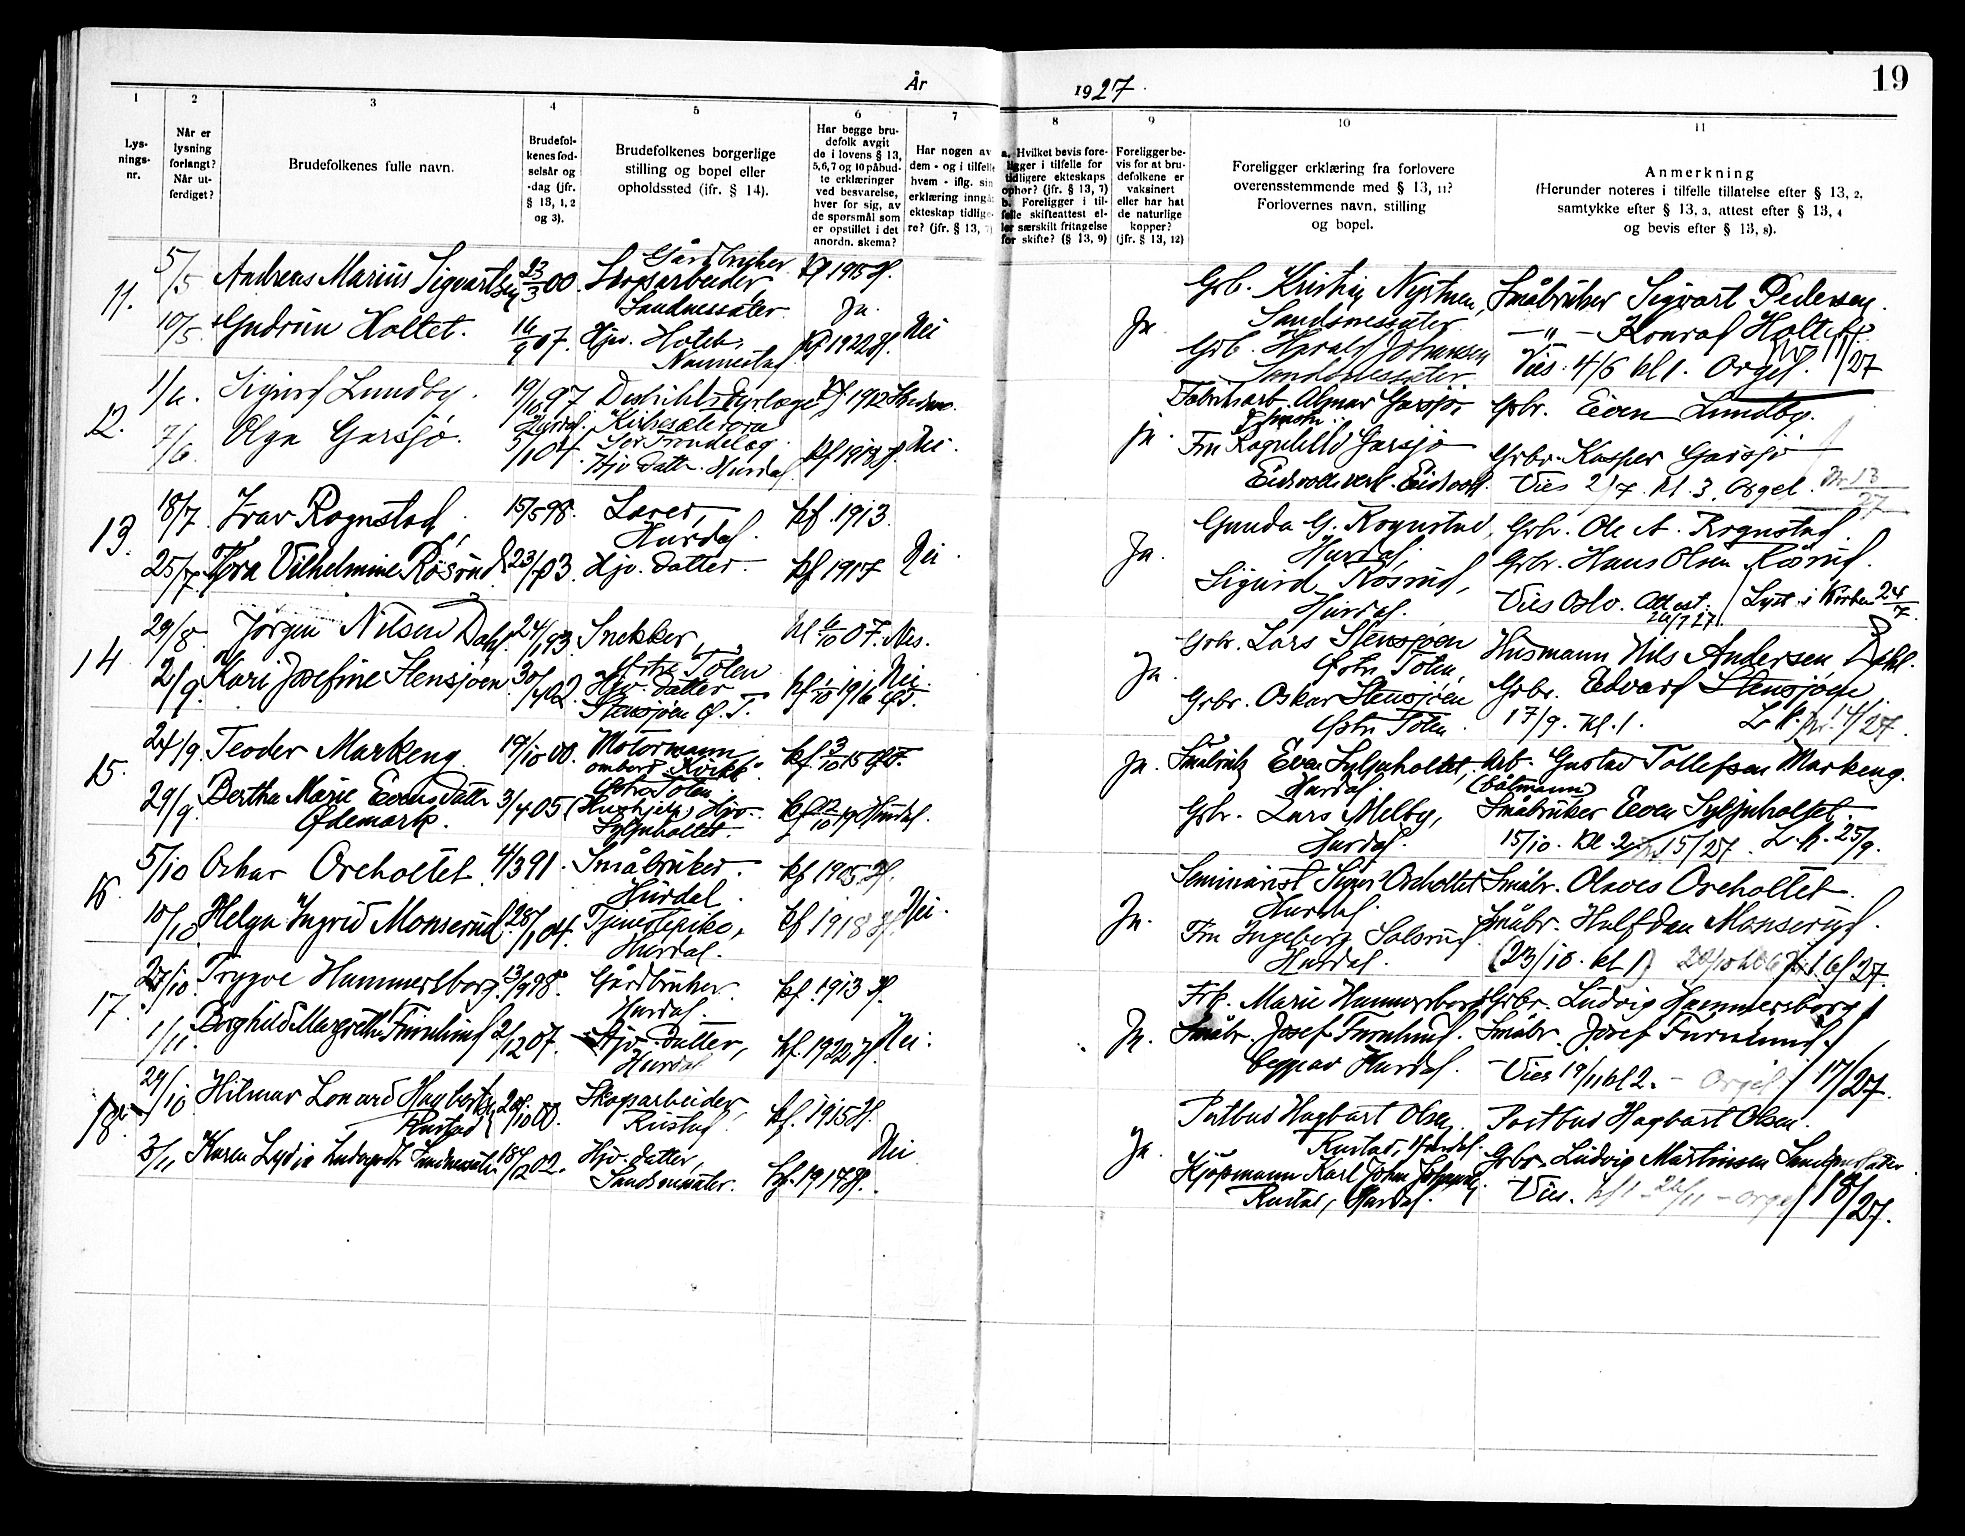 År 1927.
19
1 2 3 4 5 6 7 8 9 10 11
Lys-
nings-
nr.
Når er
lysning
forlangt?
Når ut-
ferdiget?
Brudefolkenes fulle navn.
Brudefol-
kenes fød-
selsår og
-dag (jfr.
§ 13, 1, 2
og 3).
Brudefolkenes borgerlige
stilling og bopel eller
opholdssted (jfr. § 14).
Har begge bru-
defolk avgit
de i lovens § 13,
5, 6, 7 og 10 påbud-
te erklæringer
ved besvarelse,
hver for sig, av
de spørsmål som
er opstillet i det
anordn. skema?
Har nogen av
dem - og i tilfelle
hvem - iflg. sin
erklæring inngåt
ekteskap tidlige-
re? (jfr. § 13, 7)
a. Hvilket bevis fore-
ligger i tilfelle for
tidligere ekteskaps
ophør? (jfr. § 13, 7)
b. Foreligger i til-
felle skifteattest el-
ler særskilt fritagelse
for skifte? (§ 13, 9)
Foreligger be-
vis for at bru-
defolkene er
vaksinert
eller har hat
de naturlige
kopper?
(jfr. § 13, 12)
Foreligger erklæring fra forlovere
overensstemmende med § 13, 11?
Forlovernes navn, stilling
og bopel.
Anmerkning
(Herunder noteres i tilfelle tillatelse efter § 13, 2,
samtykke efter § 13, 3, attest efter § 13, 4
og bevis efter § 13, 8).
11. 5/5 Andreas Marius Sigvartsen 23/3 00. Gårdbruker
Skogsarbeider
Sandnessæter Kf 1915 H. Ja.
10/5 Gudrun Holtet. 07. Hjv. Holtet,
Nannestad Kf 1922 H. Nei
Ja. Grb. Kristian Nystuen,
Sandsnessæter
Grb. Harald Johansen
Sandsnessæter.
Småbruker Sigvart Pedersen.
— „ — Konrad Holtet
Vies 4/6 kl 1. Orgel. 11/27
12. 1/6 Sigurd Lundby. 97 Distriktsdyrlæge
Kirkesæterøra
Sør Trøndelag. Kf 1912
7/6 Olga Garsjø. Hurdal. 5/1 04 Hjv. datter. Hurdal Kf 1918 H. Nei.
ja. Fabrikarb. Almar Garsjø,
Fru Ragnhild Garsjø
Eidsvoll verk. Eidsvoll.
Grbr. Even Lundby.
Grbr. Kasper Garsjø
Vies 2/7 kl. 3. Orgel. Nr. 13/27
13. 18/7 Ivar Rognstad 15/5 98. Lærer,
Hurdal. Kf. 1913.
25/7 Tora Vilhelmine Røsrud 23/7 03. Hjv. datter Kf 1917 Nei.
Ja. Gunda G. Rognstad,
Hurdal.
Sigurd Røsrud,
Hurdal.
Grbr. Ole A. Rognstad.
Grbr. Hans Olsen Røsrud.
Vies Oslo. Attest. 26/7 27. Lyst i Kirken 24/7
14. 29/8 Jørgen Nilsen Dahl 24/1 93 Snekker,
Østre Toten 07. Nes.
2/9 Kari Josefine Stensjøen 30/4 02 Hjv. datter
Stensjøen Ø. T. Kf 1/10 1916 Nei.
Ja. Grbr. Lars Stensjøen
Østre Toten,
Grbr. Oskar Stensjøen
Østre Toten.
Husmann Nils Andersen
Grbr. Edvard Stensjøen
17/9. kl. 1. 14/27.
15. 24/9 Teodor Markeng 19/10 00. Motormann
ombord "Kvikk"
Østre Toten Kf. 3/10 15
29/9 Bertha Marie Evensdatter
Ødemark. 3/4 05 (Hushjelp) Hjv.
Syljuholtet Hurdal.
Ja. Småbruk. Even Syljuholtet,
Hurdal.
Grbr. Lars Melby,
Hurdal.
Arb. Gustav Tollefsen Markeng.
(båtmann)
Småbruker Even Syljuholtet.
15/10. kl. 2 15/27. L. k. 25/9.
16. 5/10 Oskar Oreholtet. 4/3 91 Småbruker.
Hurdal Kf 1905. H.
10/10 Helga Ingrid Monserud 28/1 04. Tjenestepike,
Hurdal. Kf 1918 H. Nei.
Ja. Seminarist Oreholtet
Hurdal.
Fru Ingeborg Solsrud
Hurdal.
Småbr. Olaves Oreholtet.
Småbr. Halfdan Monserud.
(23/10. kl 1) 16/27.
17. 27/10 Trygve Hammersborg. 13/9 98. Gårdbruker.
Hurdal. Kf. 1913 H.
1/11 Borghild Margrethe Furulund 2/12 07. Hjv. datter,
Hurdal Kf. 1922 H. Nei.
Ja. Frk. Marie Hammersborg
Småbr. Josef Furulund.
begge av Hurdal.
Grbr. Ludvig Hammersborg
Småbr. Josef Furulund.
Vies 19/11 kl 2. — Orgel. 17/27.
18. 29/10 Hilmar Lonard Hagbartsen
Rustad 20/10 00. Skogsarbeider
Rustad Kf. 1915 H.
3/11 Karen Lydia Sandsnessæter 18/12 02. Hjv. datter,
Sandsnessæter. Kf. 1917 H. Nei
Ja. Postbud Hagbart Olsen
Rustad, Hurdal.
Kjøpmann Karl Johan Johansen
Rustad, Hurdal.
Postbud Hagbart Olsen.
Grbr. Ludvig Martinsen Sandsnessæter
Vies. kl 1 26/11 — orgel 18/27.